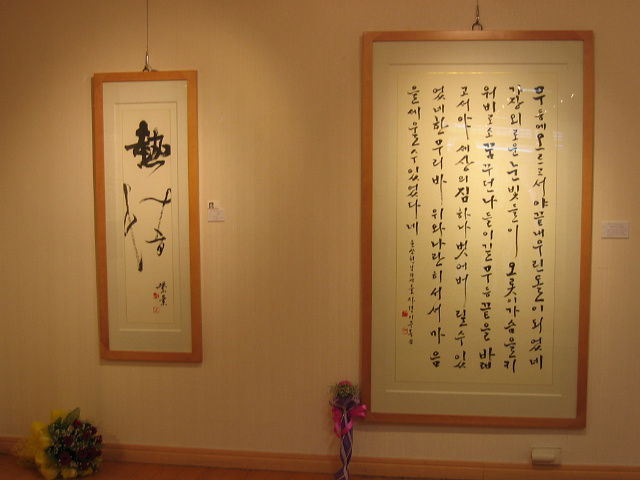 熱
情
무등에오르고서야끝내우린돌이되었네
가장외로운눈빛들이 오롯이가슴을키
워비로소꿈꾸던나들이길무등끝을밟
고서야 세상의짐하나벗어버릴수있
었네한무리바위와나란히서서마음
을세울수있었다네